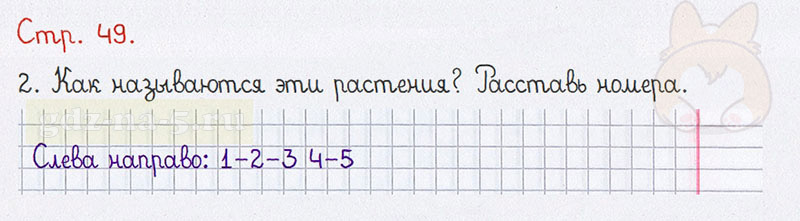 Стр. 49.
2. Как называются эти растения? Расставь номера.
gdz-na-5.ru
Слева направо: 1-2-3 4-5